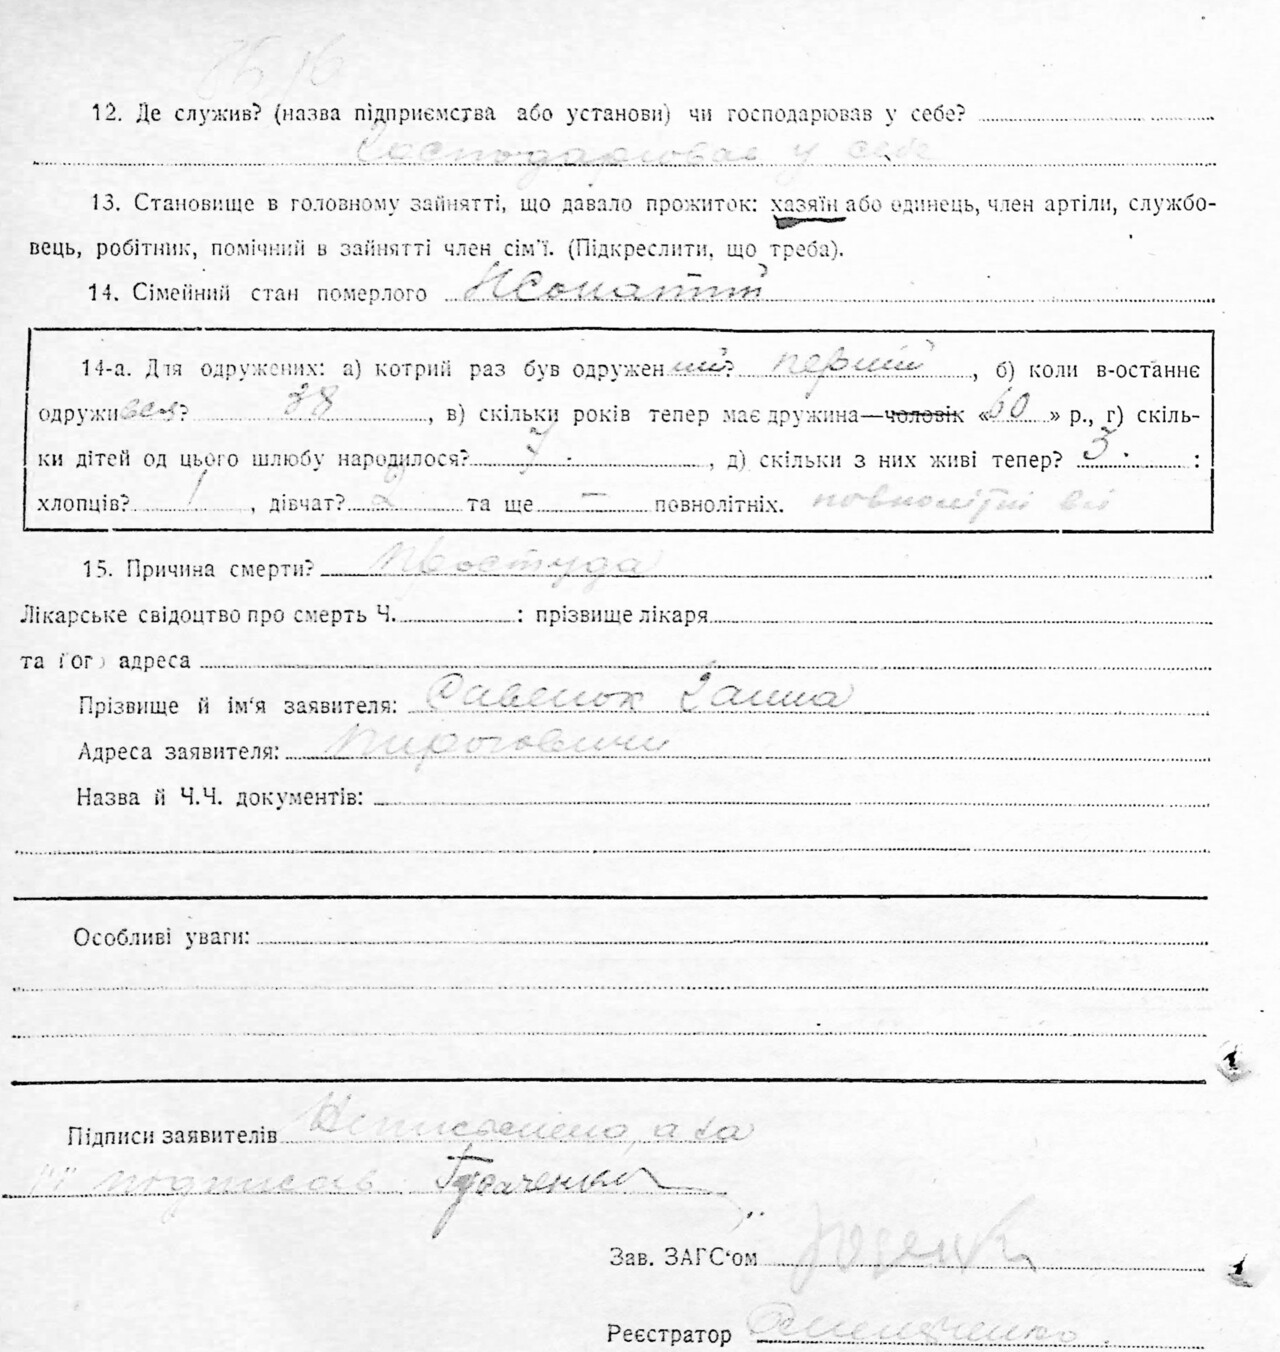 12. Де служив? (назва підприємства або установи) чи господарював у себе?
Господарював у себе
13. Становище в головному зайнятті, що давало прожиток: хазяїн або одинець, член артіли, службо-
вець, робітник, помічний в зайнятті член сім'ї. (Підкреслити, що треба).
14. Сімейний стан померлого Жонатий
14-а. Для одружених: а) котрий раз був одружений? перший, б) коли в-останнє
одружився? 38, в) скільки років тепер має дружина—чоловік «60» р., г) скіль-
ки дітей од цього шлюбу народилося? 7, д) скільки з них живі тепер? 3 :
хлопців? 1, дівчат? 2 та ще — повнолітніх. повнолітні всі
15. Причина смерти? Простуда
Лікарське свідоцтво про смерть Ч. : прізвище лікаря
та його адреса
Прізвище й ім'я заявителя: Савенок Ганна
Адреса заявителя: Пироговичи
Назва й Ч.Ч. документів:
Особливі уваги:
Підписи заявителів Неписьмена, а за
подписав Гусаченко
Зав. ЗАГС'ом
Реєстратор